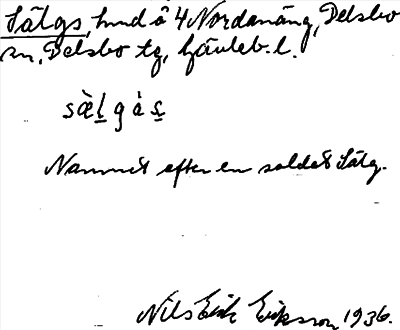 Sälgs, hmd å 4 Nordanäng, Delsbo
sn, Delsbo tg, Gävleb. l.
sæ̀l̠gás̠
Namnet efter en soldat Sälg.
Nils Erik Eriksson 1936.